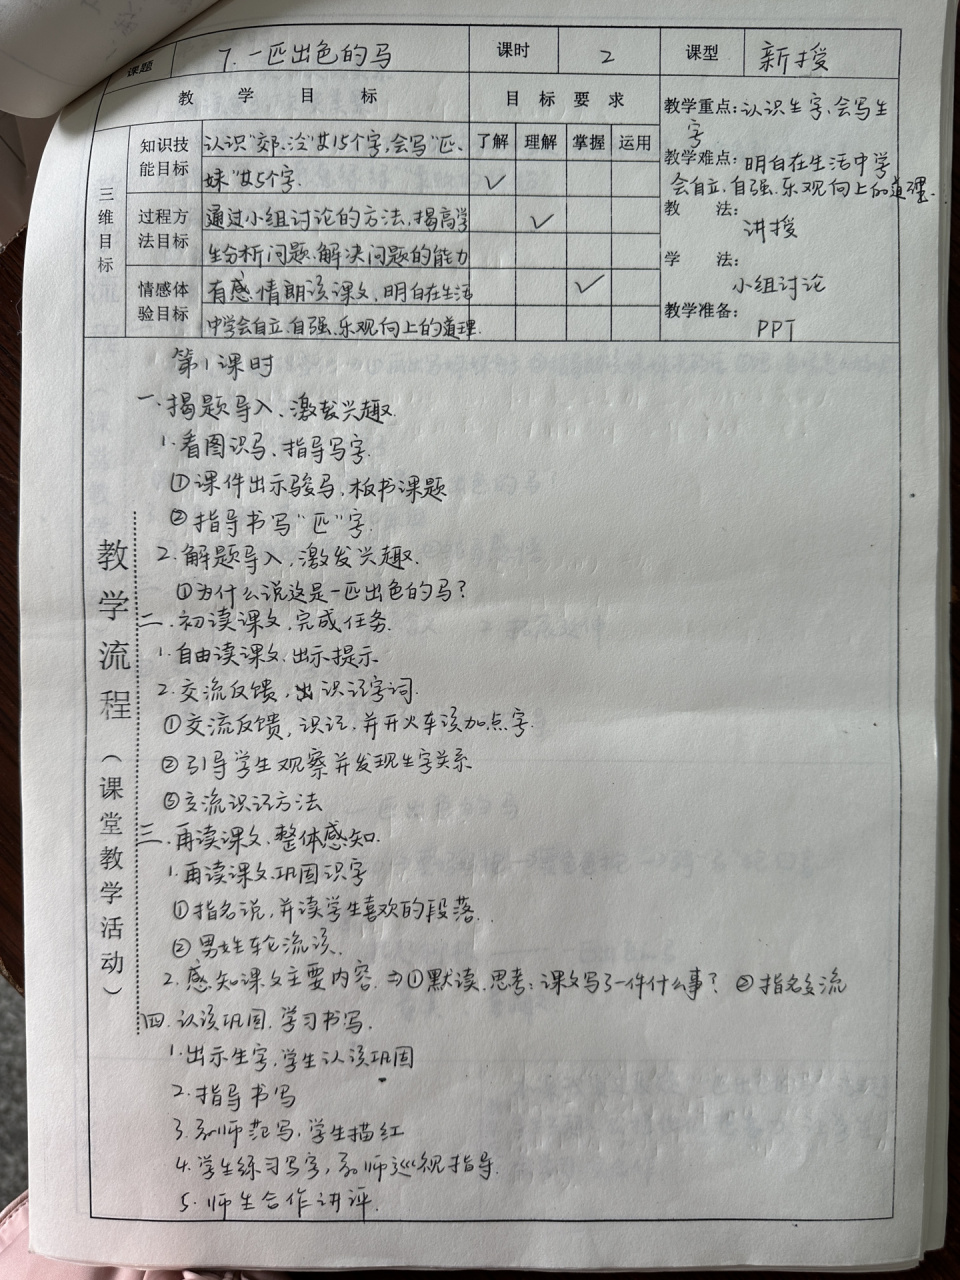 课题 7.一匹出色的马 课时 2 课型 新授
教 学 目 标 目 标 要 求
教学重点:认识生字、会写生字
教学难点:明白在生活中学会自立、自强、乐观向上的道理.
教 法:
讲授
学 法:
小组讨论
教学准备:
PPT
三维目标
了解 理解 掌握 运用
知识技能目标 认识"郊、泛"等15个字,会写"匹、
妹"等5个字. ✓
过程方法目标 通过小组讨论的方法,提高学 ✓
生分析问题、解决问题的能力
情感体验目标 有感情朗读课文,明白在生活 ✓
中学会自立、自强、乐观向上的道理.
教学流程(课堂教学活动)
第1课时
一、揭题导入、激发兴趣.
1.看图识马、指导写字.
①课件出示骏马,板书课题
②指导书写"匹"字.
2.解题导入,激发兴趣.
①为什么说这是一匹出色的马?
二.初读课文,完成任务.
1.自由读课文,出示提示
2.交流反馈,出识记字词.
①交流反馈,识记,并开火车读加点字.
②引导学生观察并发现生字关系
③交流识记方法
三.再读课文,整体感知.
1.再读课文,巩固识字
①指名说,并读学生喜欢的段落.
②男女生轮流读.
2.感知课文主要内容.⇒①默读,思考:课文写了一件什么事? ②指名交流
四.认读巩固,学习书写.
1.出示生字,学生认读巩固
2.指导书写
3.教师范写,学生描红
4.学生练习写字,教师巡视指导.
5.师生合作讲评.